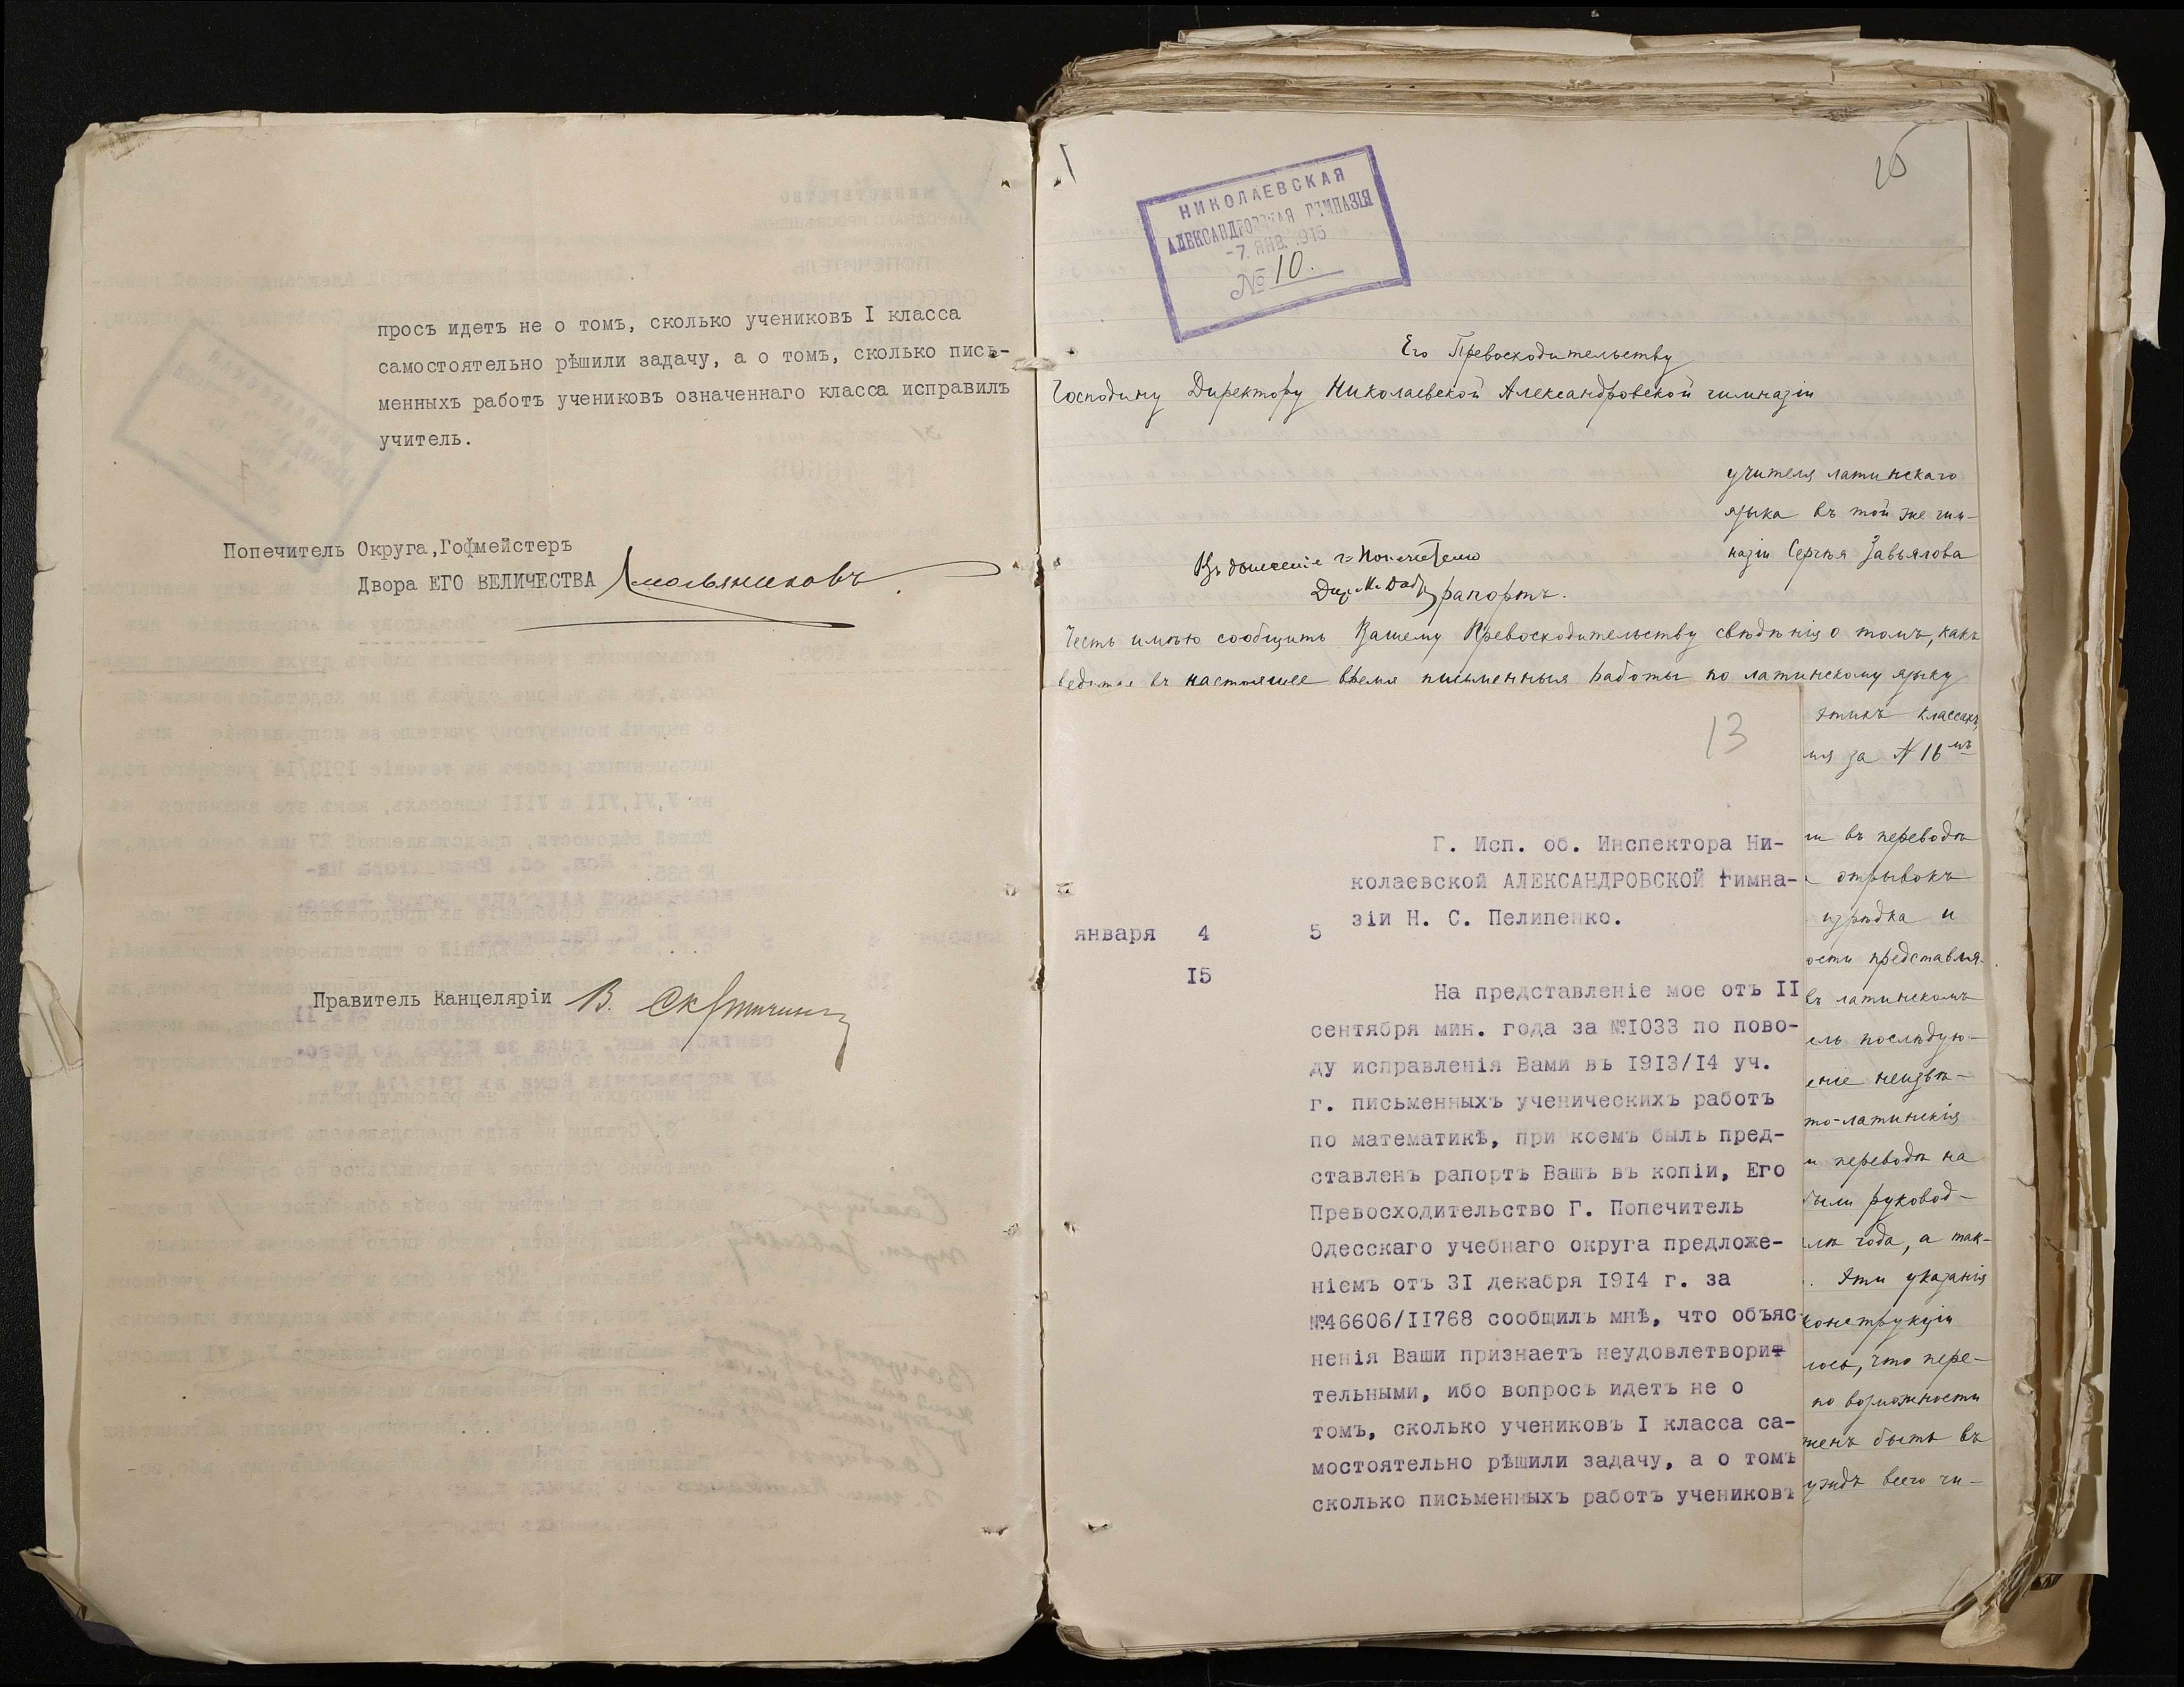 просъ идетъ не о томъ, сколько учениковъ I класса
самостоятельно рѣшили задачу, а о томъ, сколько пись-
менныхъ работъ учениковъ означеннаго класса исправилъ
учитель.
Попечитель Округа,Гофмейстеръ
Двора ЕГО ВЕЛИЧЕСТВА Смольяниковъ
Правитель Канцеляріи В.
25
НИКОЛАЕВСКАЯ
АЛЕКСАНДРОВСКАЯ ГИМНАЗІЯ
-7. ЯНВ. 1915
№ 10.
Его Превосходительству
Господину Директору Николаевской Александровской гимназіи
учителя латинскаго
языка въ той же гим-
назіи Сергѣя Завьялова
рапортъ.
Честь имѣю сообщить Вашему Превосходительству свѣдѣнія о томъ, какъ
ведутся въ настоящее время письменныя работы по латинскому языку
13
этихъ классахъ,
мя за N 16
ли въ переводѣ
отрывокъ
изрѣдка и
ости представля-
въ латинскомъ
ель послѣдую-
еніе неизвѣ-
то-латинскія
и переводѣ на
были руковод-
лѣ года, а так-
. Эти указанія
конструкціи
лось, что пере-
по возможности
женъ быть въ
уждѣ всего чи-
Г. Исп. об. Инспектора Ни-
колаевской АЛЕКСАНДРОВСКОЙ Гимна-
зіи Н. С. Пелипенко.
января 4 5
15
На представленіе мое отъ II
сентября мин. года за №I033 по пово-
ду исправленія Вами въ I913/I4 уч.
г. письменныхъ ученическихъ работъ
по математикѣ, при коемъ былъ пред-
ставленъ рапортъ Вашъ въ копіи, Его
Превосходительство Г. Попечитель
Одесскаго учебнаго округа предложе-
ніемъ отъ 3I декабря I9I4 г. за
№46606/II768 сообщилъ мнѣ, что объяс-
ненія Ваши признаетъ неудовлетвори
тельными, ибо вопросъ идетъ не о
томъ, сколько учениковъ I класса са-
мостоятельно рѣшили задачу, а о томъ
сколько письменныхъ работъ учениковъ